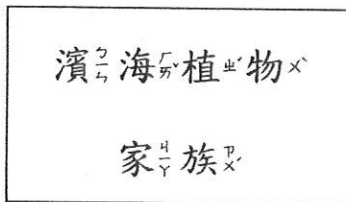 濱ㄅㄧㄣ海ㄏㄞˇ植ㄓˊ物ㄨˋ
家ㄐㄧㄚ族ㄗㄨˊ